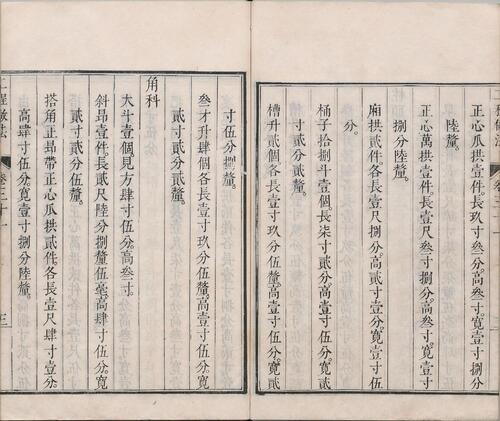 正心瓜拱壹件長壹尺。高叁寸。寬壹寸捌分
陸釐。
正心萬拱壹件長壹尺叁寸捌分。高叁寸。寬壹寸
捌分陸釐。
廂拱貳件各長壹尺捌分。高貳寸壹分。寬壹寸伍
分。
桶子拾捌斗壹個長柒寸貳分。高壹寸伍分。寬壹
寸貳分貳釐。
槽升貳個各長壹寸玖分伍釐。高壹寸伍分。寬貳
寸伍分捌釐。
叁才升肆個各長壹寸玖分伍釐。高壹寸伍分。寬
貳寸貳分貳釐。
角科
大斗壹個見方肆寸伍分。高叁寸。
斜昻壹件長貳尺陸分捌釐伍毫。高肆寸伍分。寬
貳寸貳分伍釐。
搭角正昻帶正心瓜拱貳件各長壹尺肆寸壹分。
高肆寸伍分。寬壹寸捌分陸釐。
工程做法 卷三十一 三